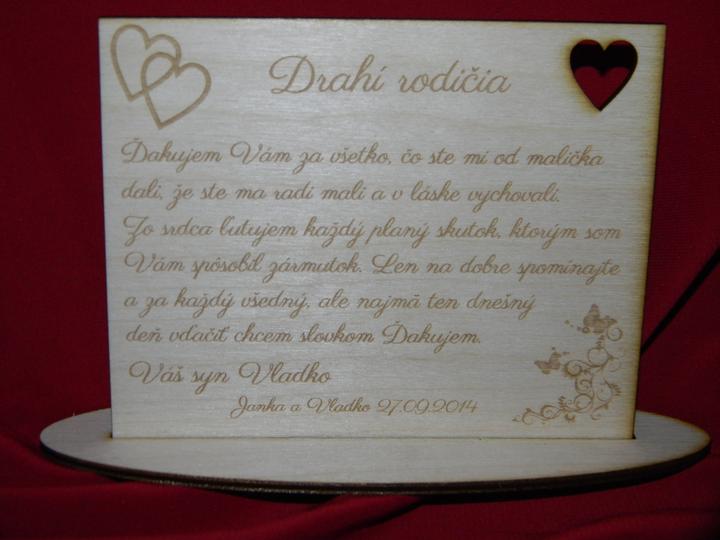 Drahí rodičia
Ďakujem Vám za všetko, čo ste mi od malička
dali, že ste ma radi mali a v láske vychovali.
Zo srdca ľutujem každý planý skutok, ktorým som
Vám spôsobil zármutok. Len na dobre spomínajte
a za každý všedný, ale najmä ten dnešný
deň vďačiť chcem slovkom Ďakujem.
Váš syn Vladko
Janka a Vladko 27.09.2014